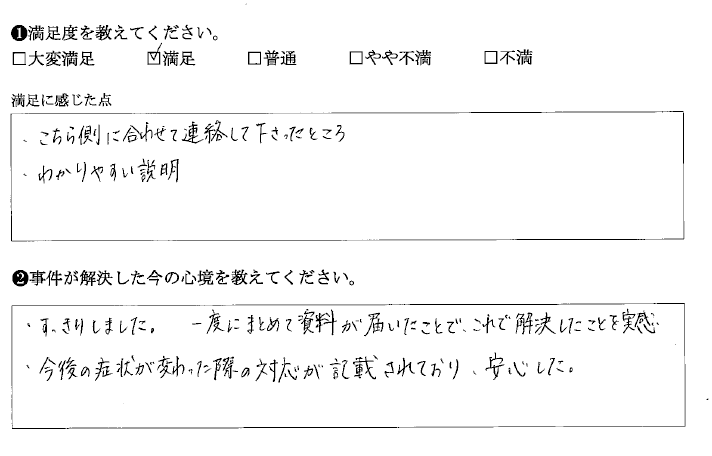 ❶満足度を教えてください。
□大変満足 ☑満足 □普通 □やや不満 □不満
満足に感じた点
・こちら側に合わせて連絡して下さったところ
・わかりやすい説明
❷事件が解決した今の心境を教えてください。
・すっきりしました。 一度にまとめて資料が届いたことで、これで解決したことを実感
・今後の症状が変わった際の対応が記載されており、安心した。